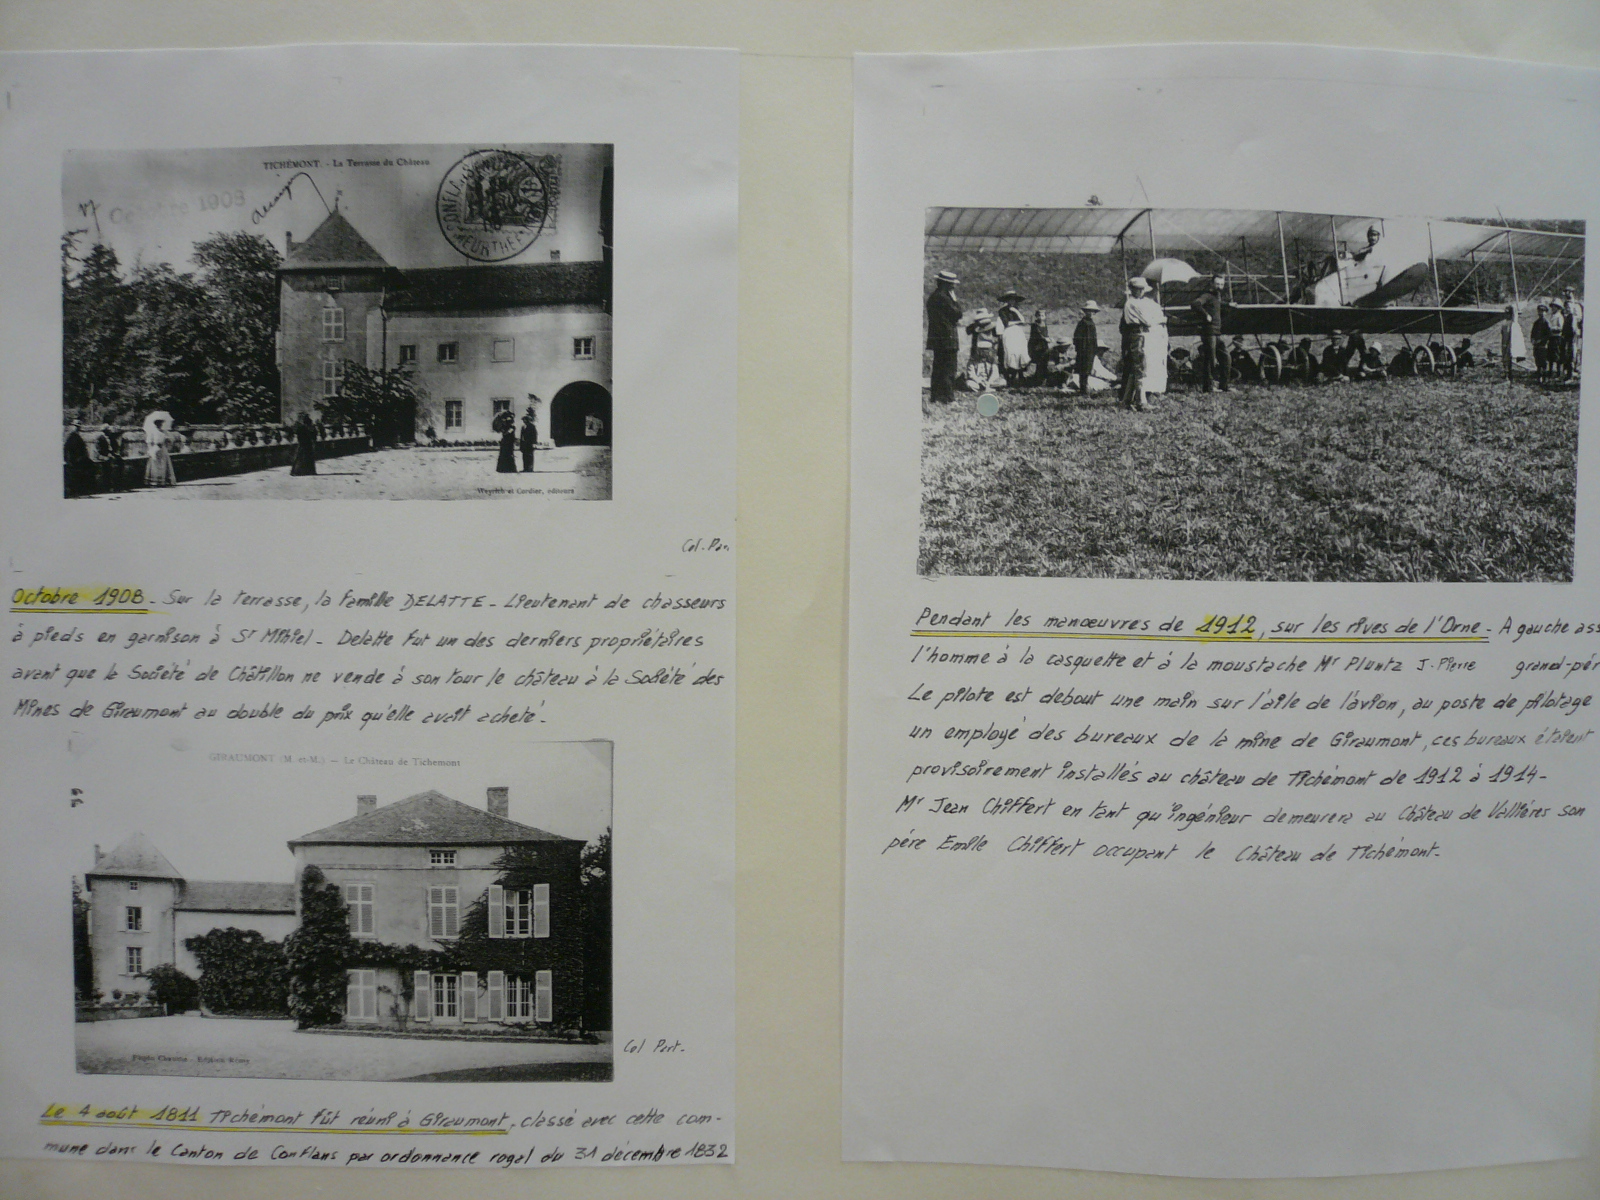 TICHÉMONT - La Terrasse du Château
Octobre 1908
CONFLANS
Weyrich et Cordier, éditeurs
Col. Par
Octobre 1908 - Sur la terrasse, la famille DELATTE - Lieutenant de chasseurs
à pieds en garnison à St Mihiel - Delatte fut un des derniers propriétaires
avant que la Société de Châtillon ne vende à son tour le château à la Société des
Mines de Giraumont au double du prix qu'elle avait acheté -
GIRAUMONT (M.-et-M.) — Le Château de Tichemont
Edition Rémy
Col Part.
Le 4 août 1811 Tichémont fût réuni à Giraumont, classé avec cette com-
mune dans le Canton de Conflans par ordonnance royal du 31 décembre 1832
Pendant les manœuvres de 1912, sur les rives de l'Orne - A gauche ass
l'homme à la casquette et à la moustache Mr Pluntz J-Pierre grand-pèr
Le pilote est debout une main sur l'aile de l'avion, au poste de pilotage
un employé des bureaux de la mine de Giraumont, ces bureaux étaient
provisoirement installés au château de Tichémont de 1912 à 1914 -
Mr Jean Chiffert en tant qu'ingénieur demeurera au Château de Vallières son
père Emile Chiffert occupant le Château de Tichémont -